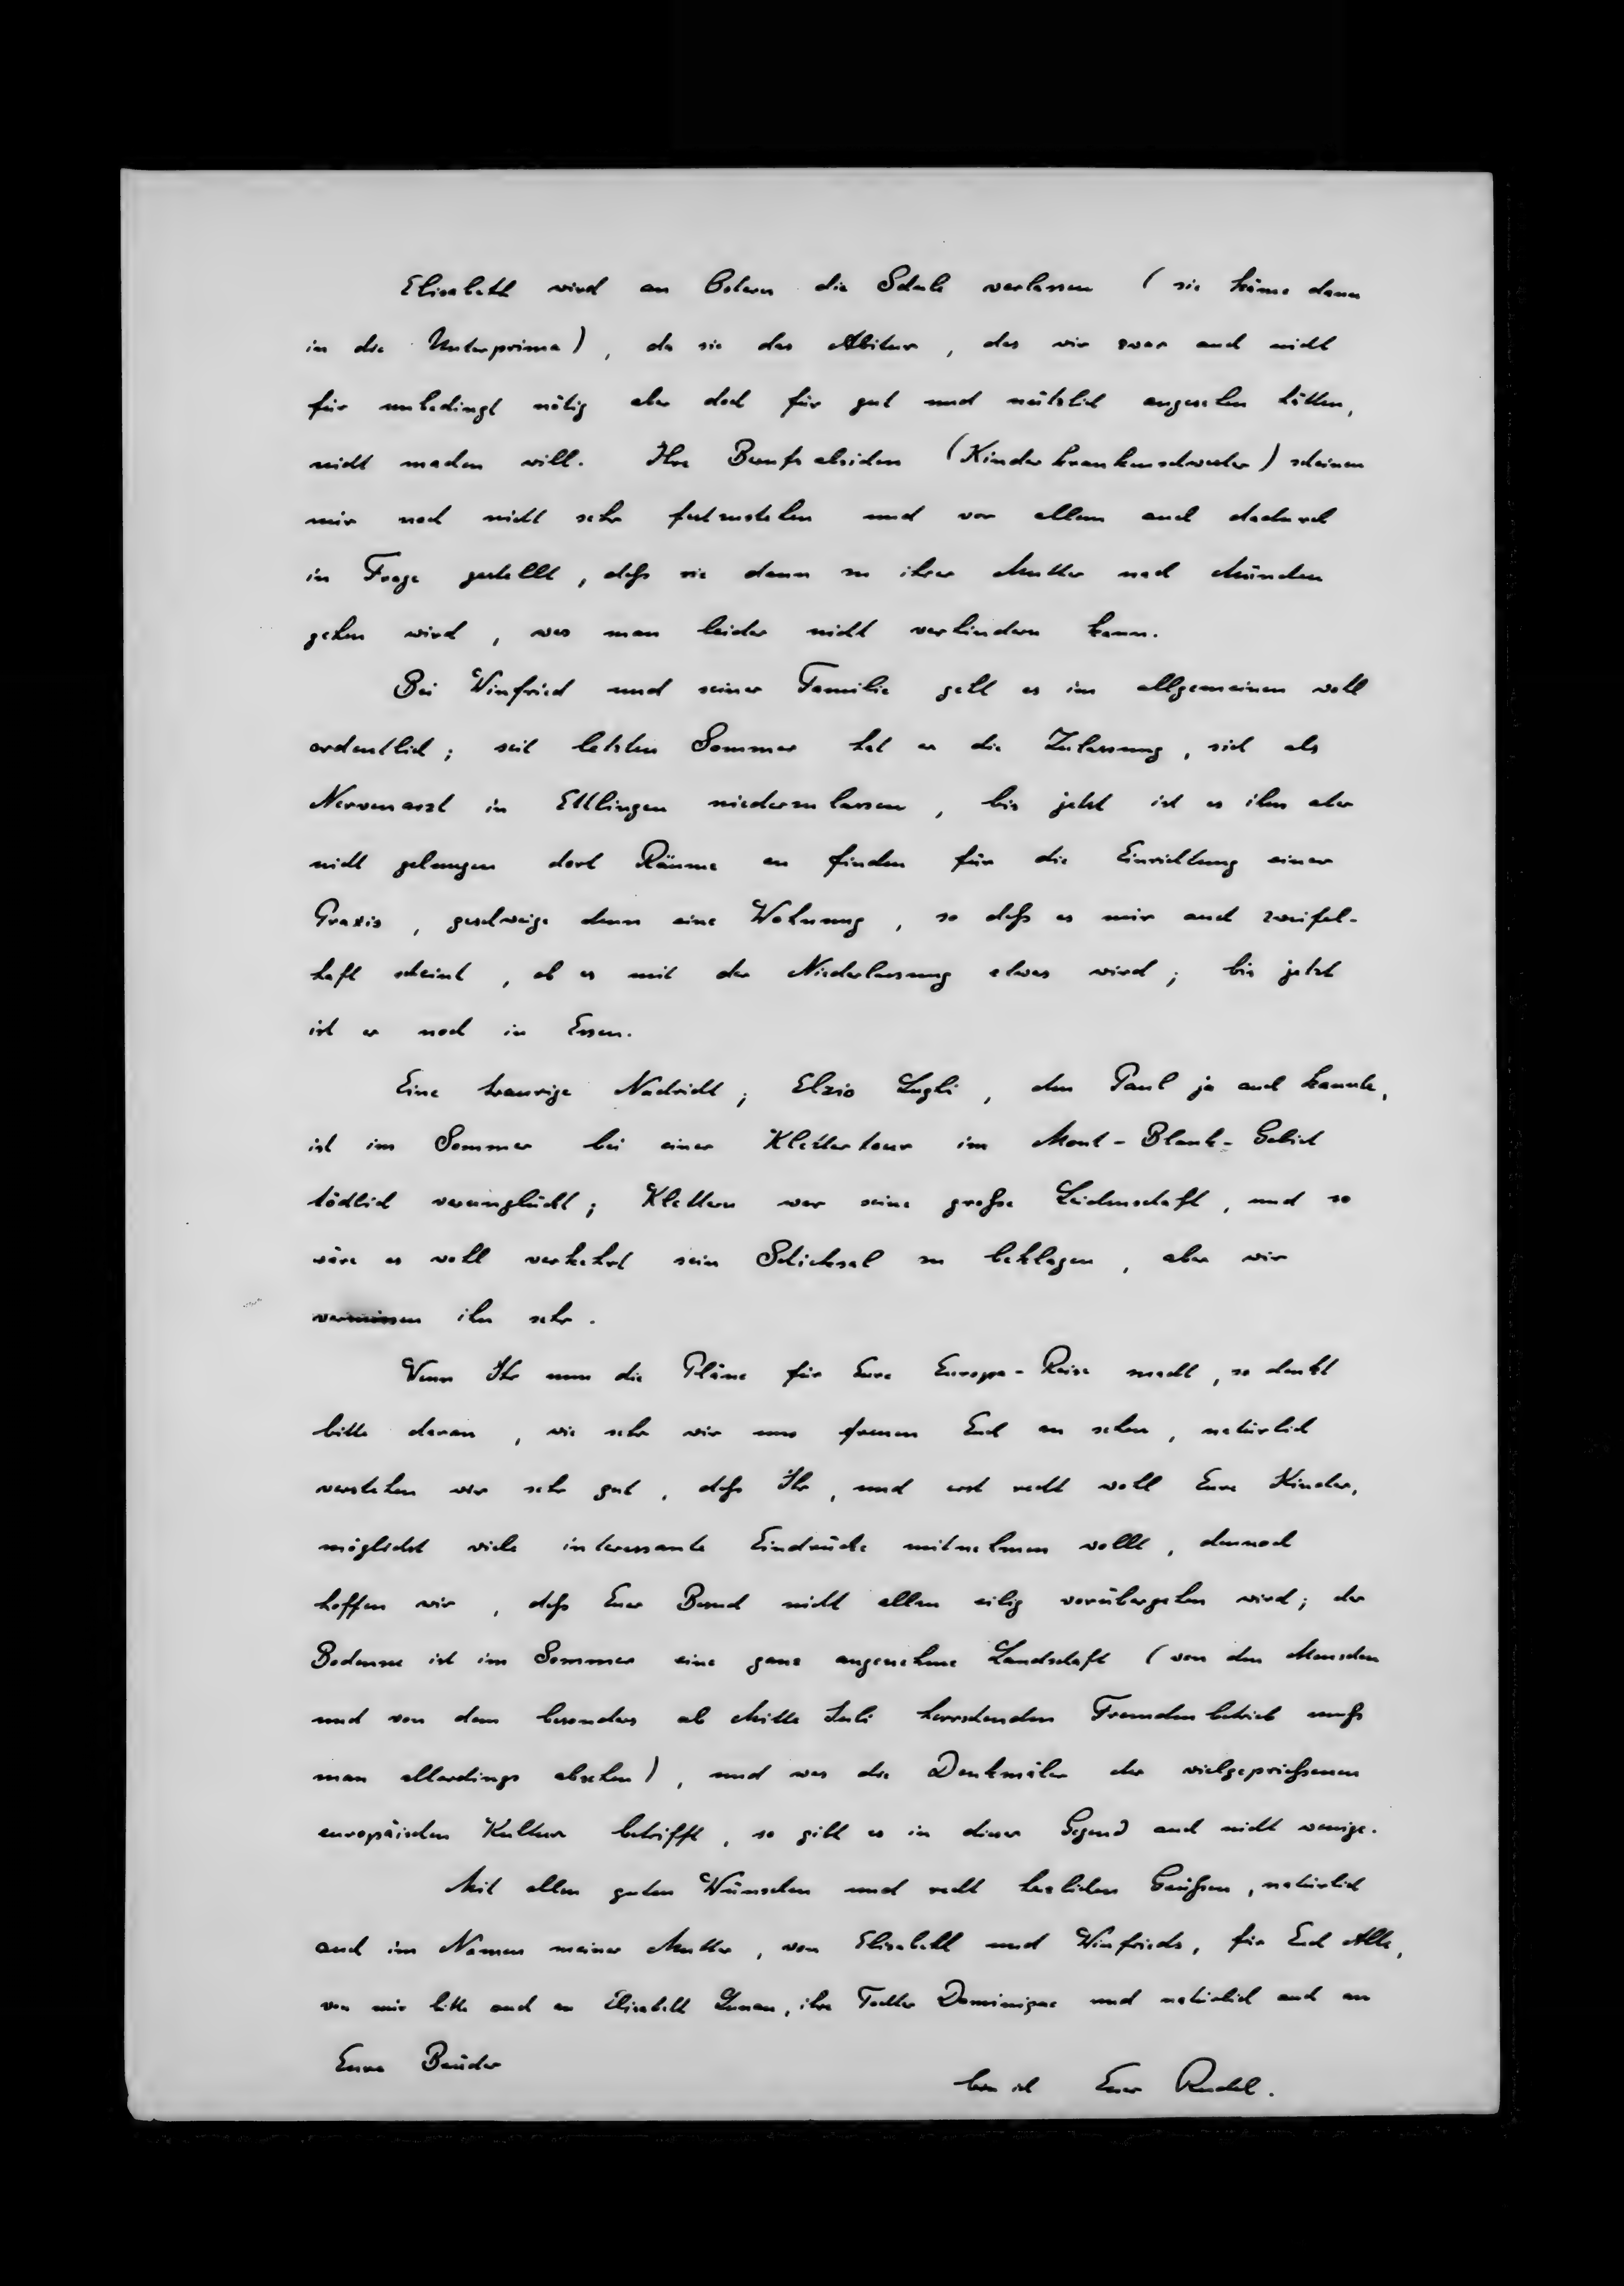 Elisabeth wird an Ostern die Schule verlassen (sie käme dann
in die Unterprima), da sie das Abitur, das wir zwar auch nicht
für unbedingt nötig aber doch für gut und nützlich angesehen hätten,
nicht machen will. Ihre Berufsabsichten (Kinderkrankenschwester) scheinen
mir noch nicht sehr festzustehen und vor allem auch dadurch
in Frage gestellt, daß sie dann zu ihrer Mutter nach München
gehen wird, was man leider nicht verhindern kann.
Bei Winfried und seiner Familie geht es im allgemeinen wohl
ordentlich; seit letzten Sommer hat er die Zulassung, sich als
Nervenarzt in Ettlingen niederzulassen, bis jetzt ist es ihm aber
nicht gelungen dort Räume zu finden für die Einrichtung einer
Praxis, geschweige denn eine Wohnung, so daß es mir auch zweifel-
haft scheint, ob es mit der Niederlassung etwas wird; bis jetzt
ist er noch in Essen.
Eine traurige Nachricht; Elzio Lugli, den Paul ja auch kannte,
ist im Sommer bei einer Klettertour im Mont-Blank-Gebiet
tödlich verunglückt; Klettern war seine große Leidenschaft, und so
wäre es wohl verkehrt sein Schicksal zu beklagen, aber wir
vermissen ihn sehr.
Wenn Ihr nun die Pläne für Eure Europa-Reise macht, so denkt
bitte daran, wie sehr wir uns freuen Euch zu sehen, natürlich
verstehen wir sehr gut, daß Ihr, und erst recht wohl Eure Kinder,
möglichst viele interessante Eindrücke mitnehmen wollt, dennoch
hoffen wir, daß Euer Besuch nicht allzu eilig vorübergehen wird; der
Bodensee ist im Sommer eine ganz angenehme Landschaft (von den Menschen
und von dem besonders ab Mitte Juli herrschenden Fremdenbetrieb muß
man allerdings absehen), und was die Denkmäler der vielgeprießenen
europäischen Kultur betrifft, so gibt es in dieser Gegend auch nicht wenige.
Mit allen guten Wünschen und recht herzlichen Grüßen, natürlich
auch im Namen meiner Mutter, von Elisabeth und Winfrieds, für Euch Alle,
von mir bitte auch an Elisabeth, ihre Tochter Dominique und natürlich auch an
Eure Brüder
bin ich Euer Rudel.